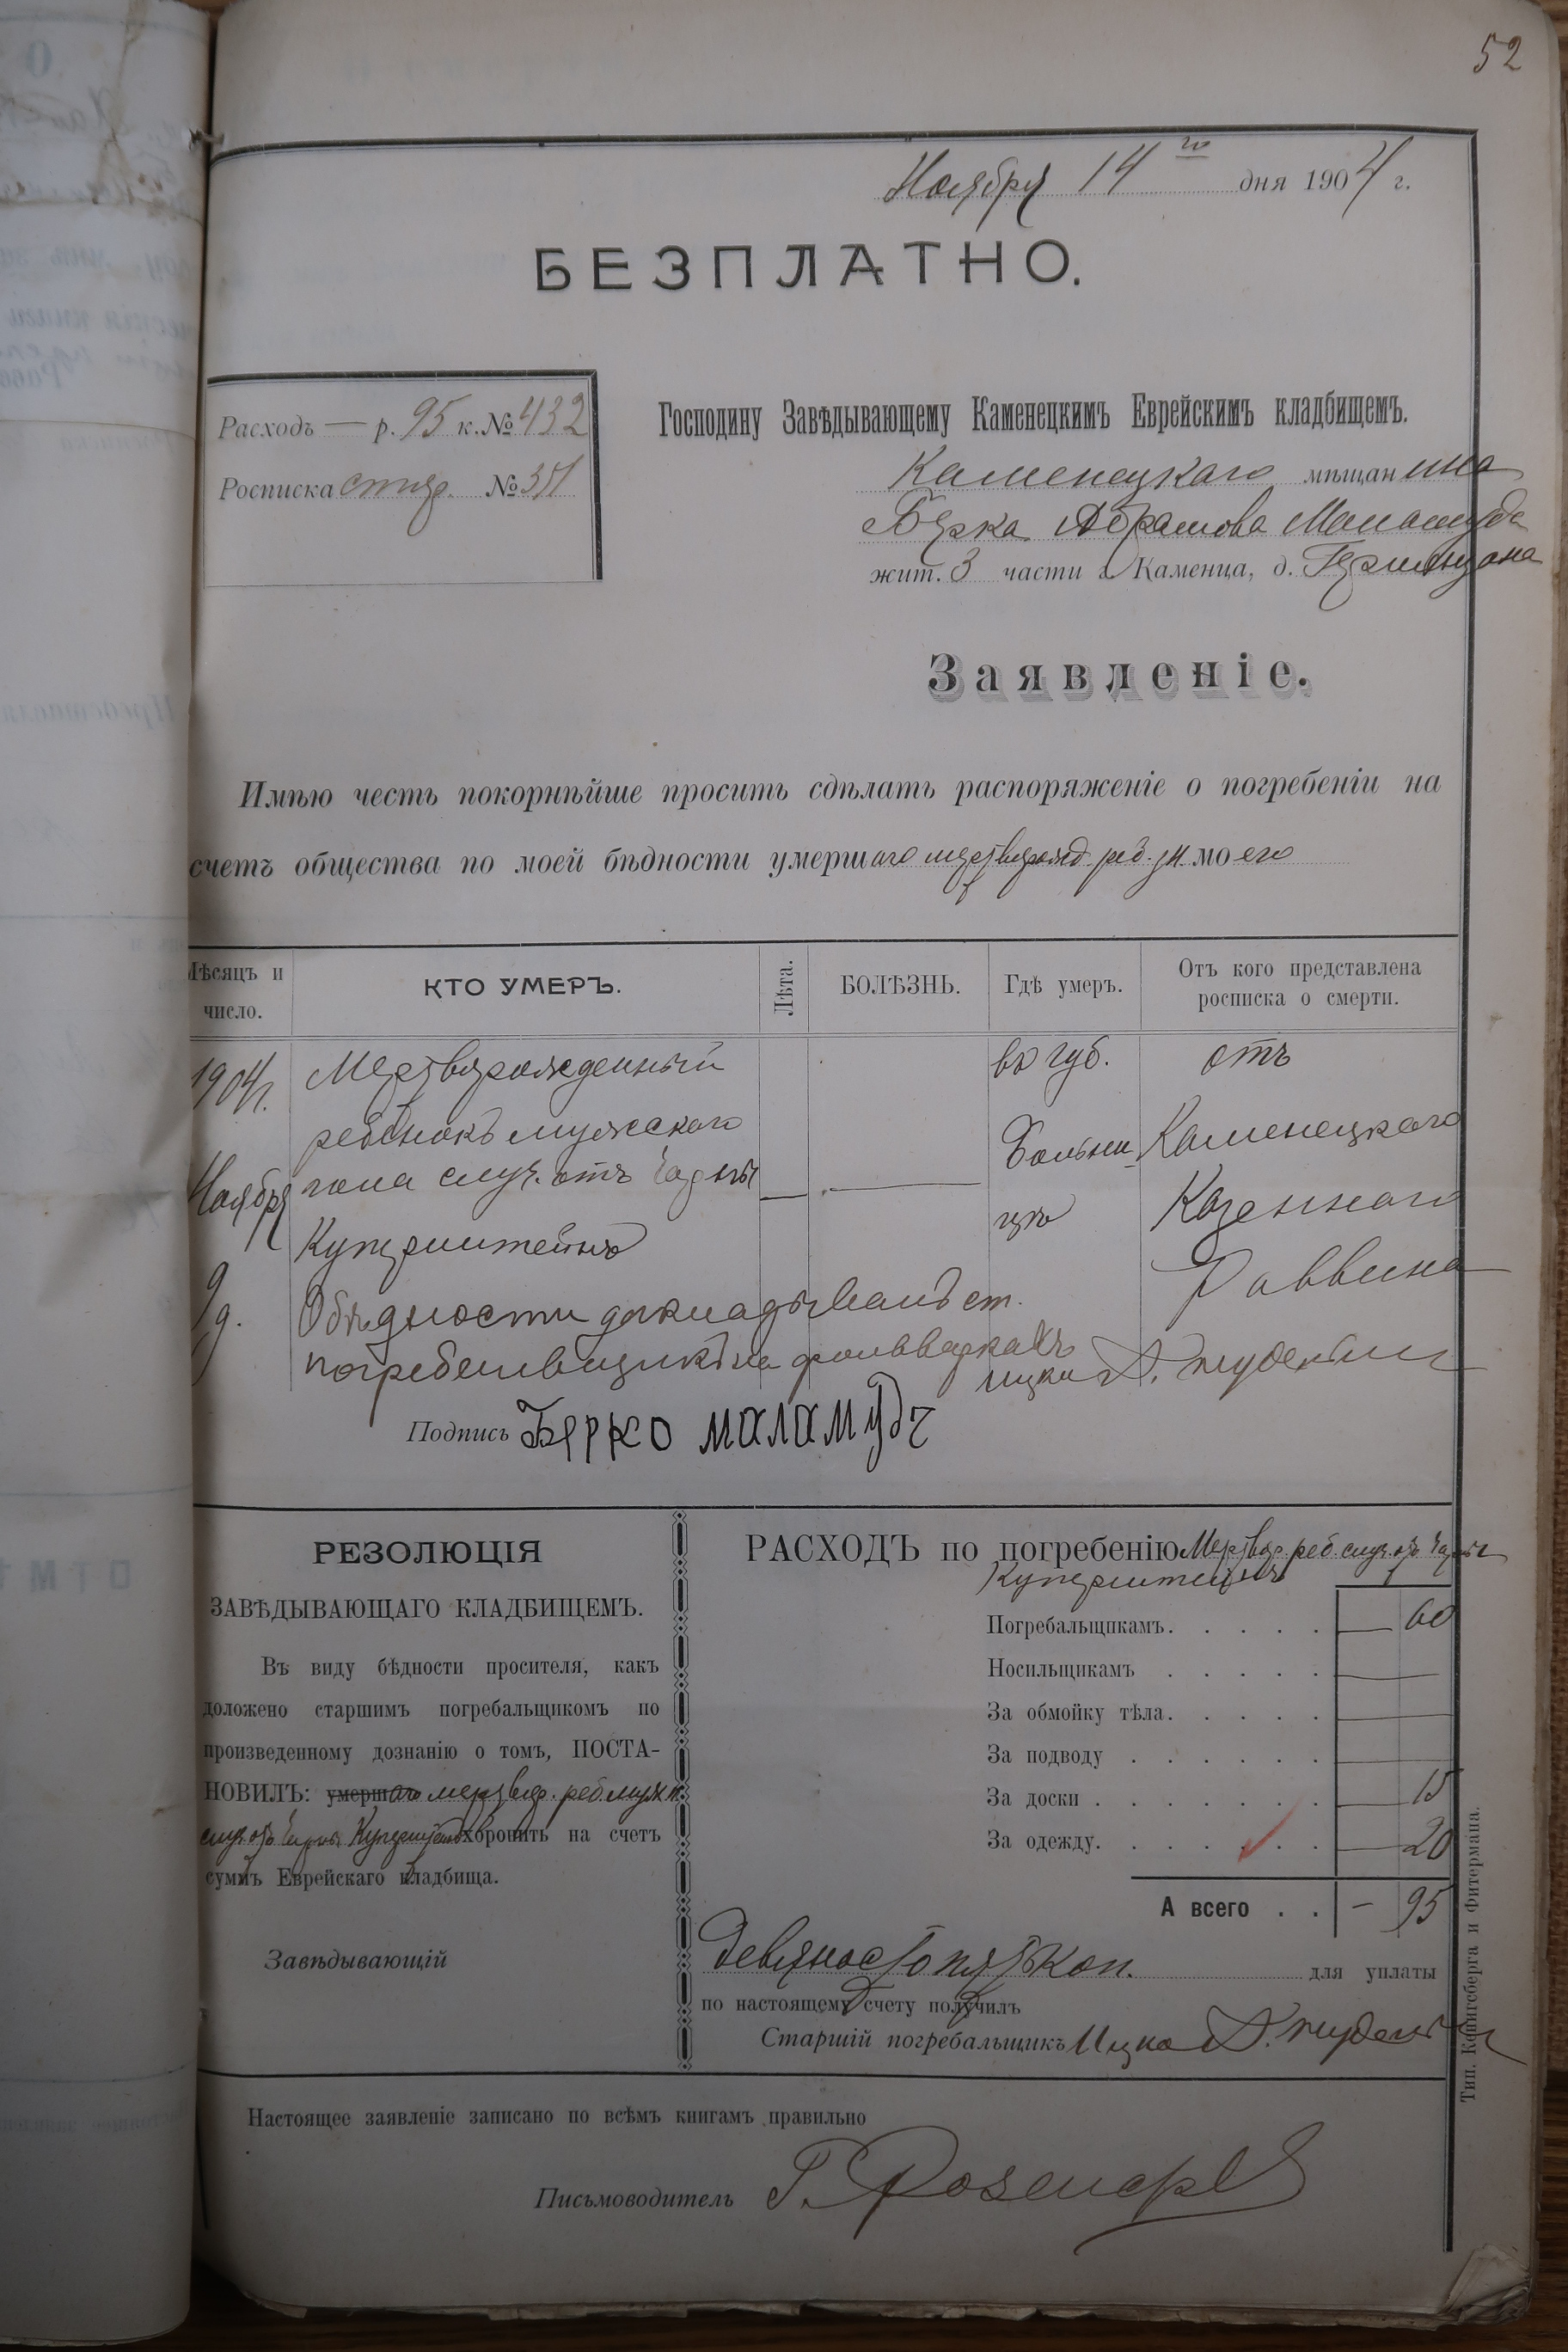 52
Ноября 14 го дня 1904 г.
БЕЗПЛАТНО.
Расходъ — р. 95 к. № 432
Росписка № 351
Господину Завѣдывающему Каменецкимъ Еврейскимъ кладбищемъ.
Каменецкаго мѣщанина
Берка Абрамова Маламуда
жит. 3 части г. Каменца, д.
Заявленіе.
Имѣю честь покорнѣйше просить сдѣлать распоряженіе о погребеніи на
счетъ общества по моей бѣдности умершаго мертворожд. реб. моего
Мѣсяцъ и число.
КТО УМЕРЪ.
Лѣта.
БОЛѢЗНЬ.
Гдѣ умеръ.
Отъ кого представлена росписка о смерти.
1904 г.
Ноября
9 д.
Мертворожденный
ребенокъ мужескаго
пола случ. отъ
Куперштейнъ
— —
въ губ.
больни
цѣ
отъ
Каменецкаго
Казеннаго
Раввина
О бѣдности докладывалъ ст.
погребальщикъ на фольваркахъ
Ицко
Подпись Берко маламудъ
РЕЗОЛЮЦІЯ
ЗАВѢДЫВАЮЩАГО КЛАДБИЩЕМЪ.
Въ виду бѣдности просителя, какъ
доложено старшимъ погребальщикомъ по
произведенному дознанію о томъ, ПОСТА-
НОВИЛЪ: умершаго мертвор. реб. муж п.
случ отъ хоронить на счетъ
суммъ Еврейскаго кладбища.
Завѣдывающій
РАСХОДЪ по погребенію Мертвор. реб. случ. отъ
Куперштейнъ
Погребальщикамъ. . . . . — 60
Носильщикамъ . . . . . —
За обмойку тѣла. . . . . —
За подводу . . . . . . —
За доски . . . . . . . — 15
За одежду. . . . . . . — 20
А всего . . — 95
Девяносто пять коп. для уплаты
по настоящему счету получилъ
Старшій погребальщикъ Ицко
Тип. Кенигсберга и Фитермана.
Настоящее заявленіе записано по всѣмъ книгамъ правильно
Письмоводитель